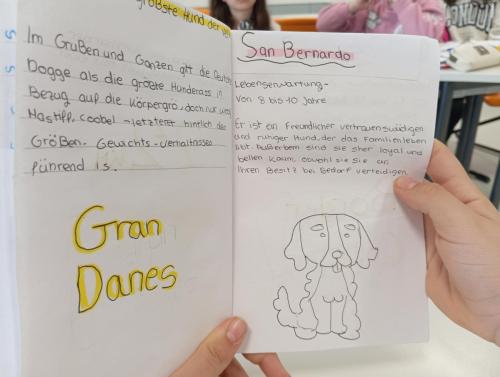 größste Hund der
Im Großen und Ganzen gilt die Deutsche
Dogge als die größte Hunderass in
Bezug auf die Körpergrö
Mastiff, letzterer hinsichtlich der
Größen. Gewichts-verhältnisses
führend is.
Gran
Danes
San Bernardo
Lebenserwartung-
Von 8 bis 10 Jahre
Er ist ein Freundlicher vertrauenswürdigen
und ruhiger Hund, der das Familienleben
libt. Außerbem sind sie sher loyal und
bellen kaum, obwohl sie Sie an
Ihren Besitz bei Bedarf verteidigen.